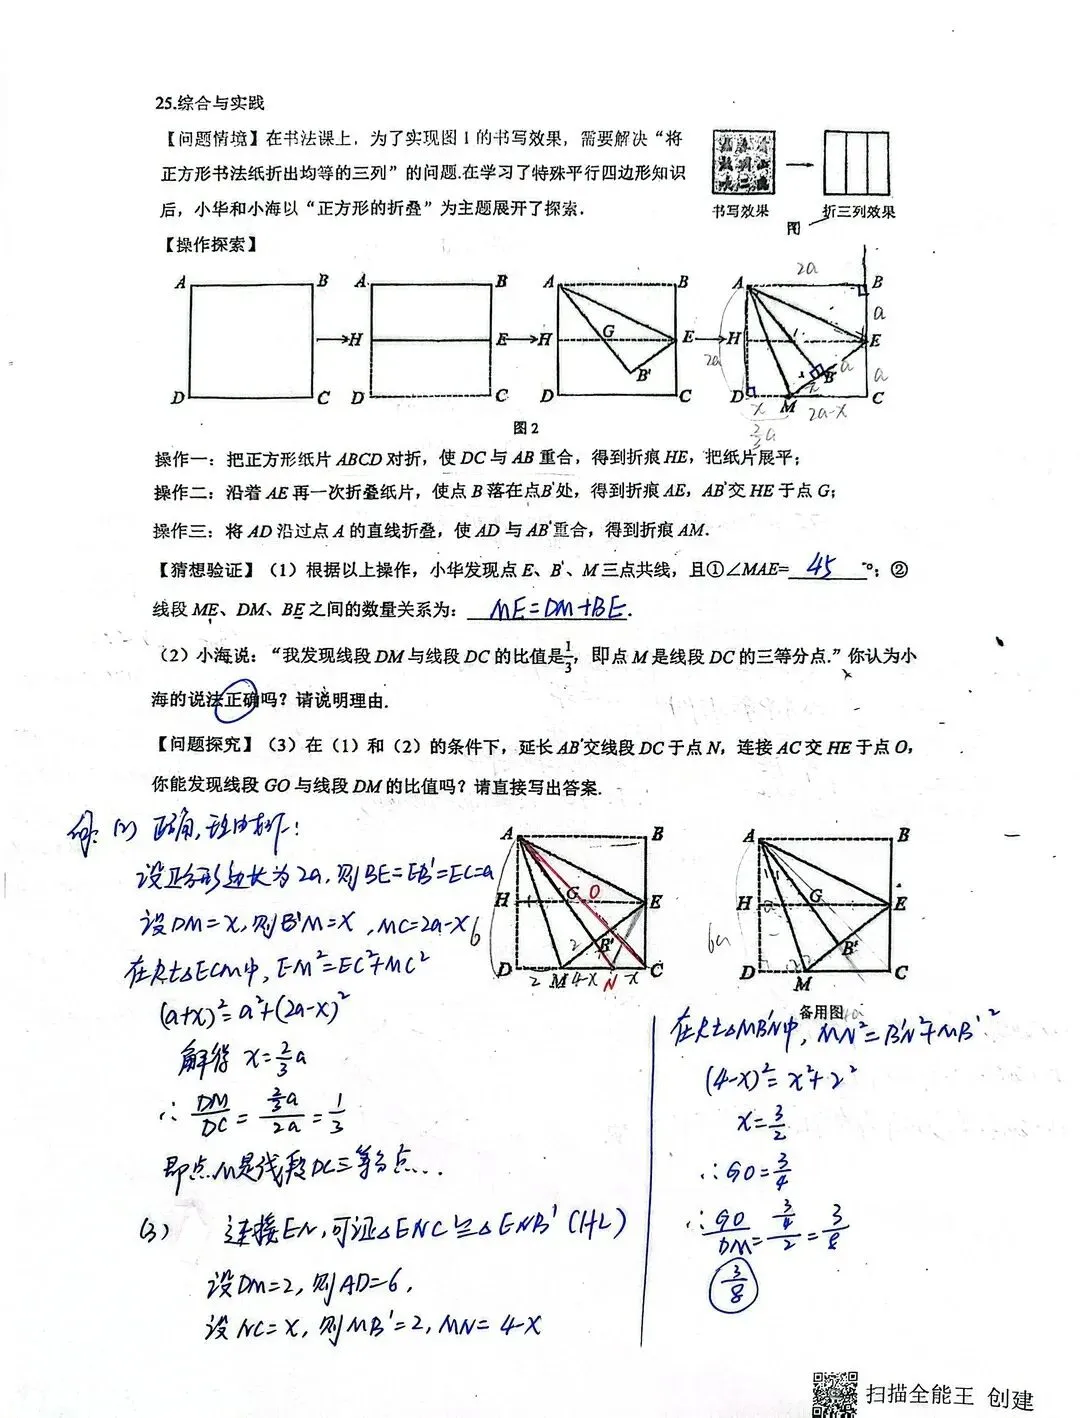 25.综合与实践
【问题情境】在书法课上，为了实现图1的书写效果，需要解决“将
正方形书法纸折出均等的三列”的问题.在学习了特殊平行四边形知识
后，小华和小海以“正方形的折叠”为主题展开了探索.
书写效果
折三列效果
图
【操作探索】
A B
D C
A B
H E
D C
A B
H G E
B'
D C
2a
A B
a
H E
2a
B' a
a
D M C
x 2a-x
2/3 a
图2
操作一：把正方形纸片ABCD对折，使DC与AB重合，得到折痕HE，把纸片展平；
操作二：沿着AE再一次折叠纸片，使点B落在点B'处，得到折痕AE，AB'交HE于点G；
操作三：将AD沿过点A的直线折叠，使AD与AB'重合，得到折痕AM.
【猜想验证】（1）根据以上操作，小华发现点E、B'、M三点共线，且①∠MAE=45°；②
线段ME、DM、BE之间的数量关系为：ME=DM+BE.
（2）小海说：“我发现线段DM与线段DC的比值是1/3，即点M是线段DC的三等分点.”你认为小
海的说法正确吗？请说明理由.
【问题探究】（3）在（1）和（2）的条件下，延长AB'交线段DC于点N，连接AC交HE于点O，
你能发现线段GO与线段DM的比值吗？请直接写出答案.
(2) 正确,理由如下:
设正方形边长为2a,则BE=EB'=EC=a
设DM=x,则B'M=x,MC=2a-x
在Rt△ECM中,EM²=EC²+MC²
(a+x)²=a²+(2a-x)²
解得 x=2/3 a
∴ DM/DC = (2/3 a)/2a = 1/3
即点M是线段DC三等分点...
(3) 连接EN,可证△ENC≌△ENB'(HL)
设DM=2,则AD=6,
设NC=x,则MB'=2,MN=4-x
A B
H G O E
6
2 B'
D 2 M 4-x N x C
A B
H G E
6a
B'
D M C
备用图
在Rt△MB'N中,MN²=B'N²+MB'²
(4-x)²=x²+2²
x=3/2
∴GO=3/4
∴ GO/DM = (3/4)/2 = 3/8
3/8
扫描全能王 创建